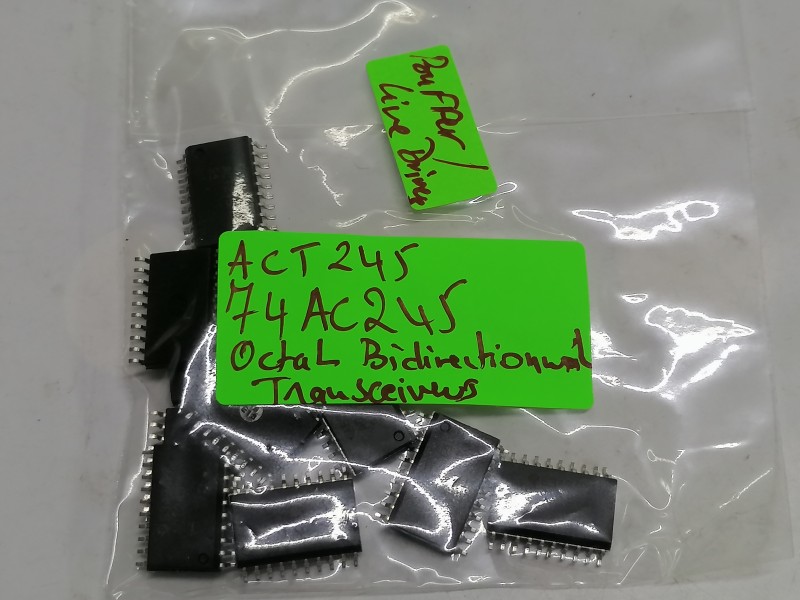 Puffer/
Line Driver
ACT245
74AC245
Octal Bidirectionnal
Transceivers